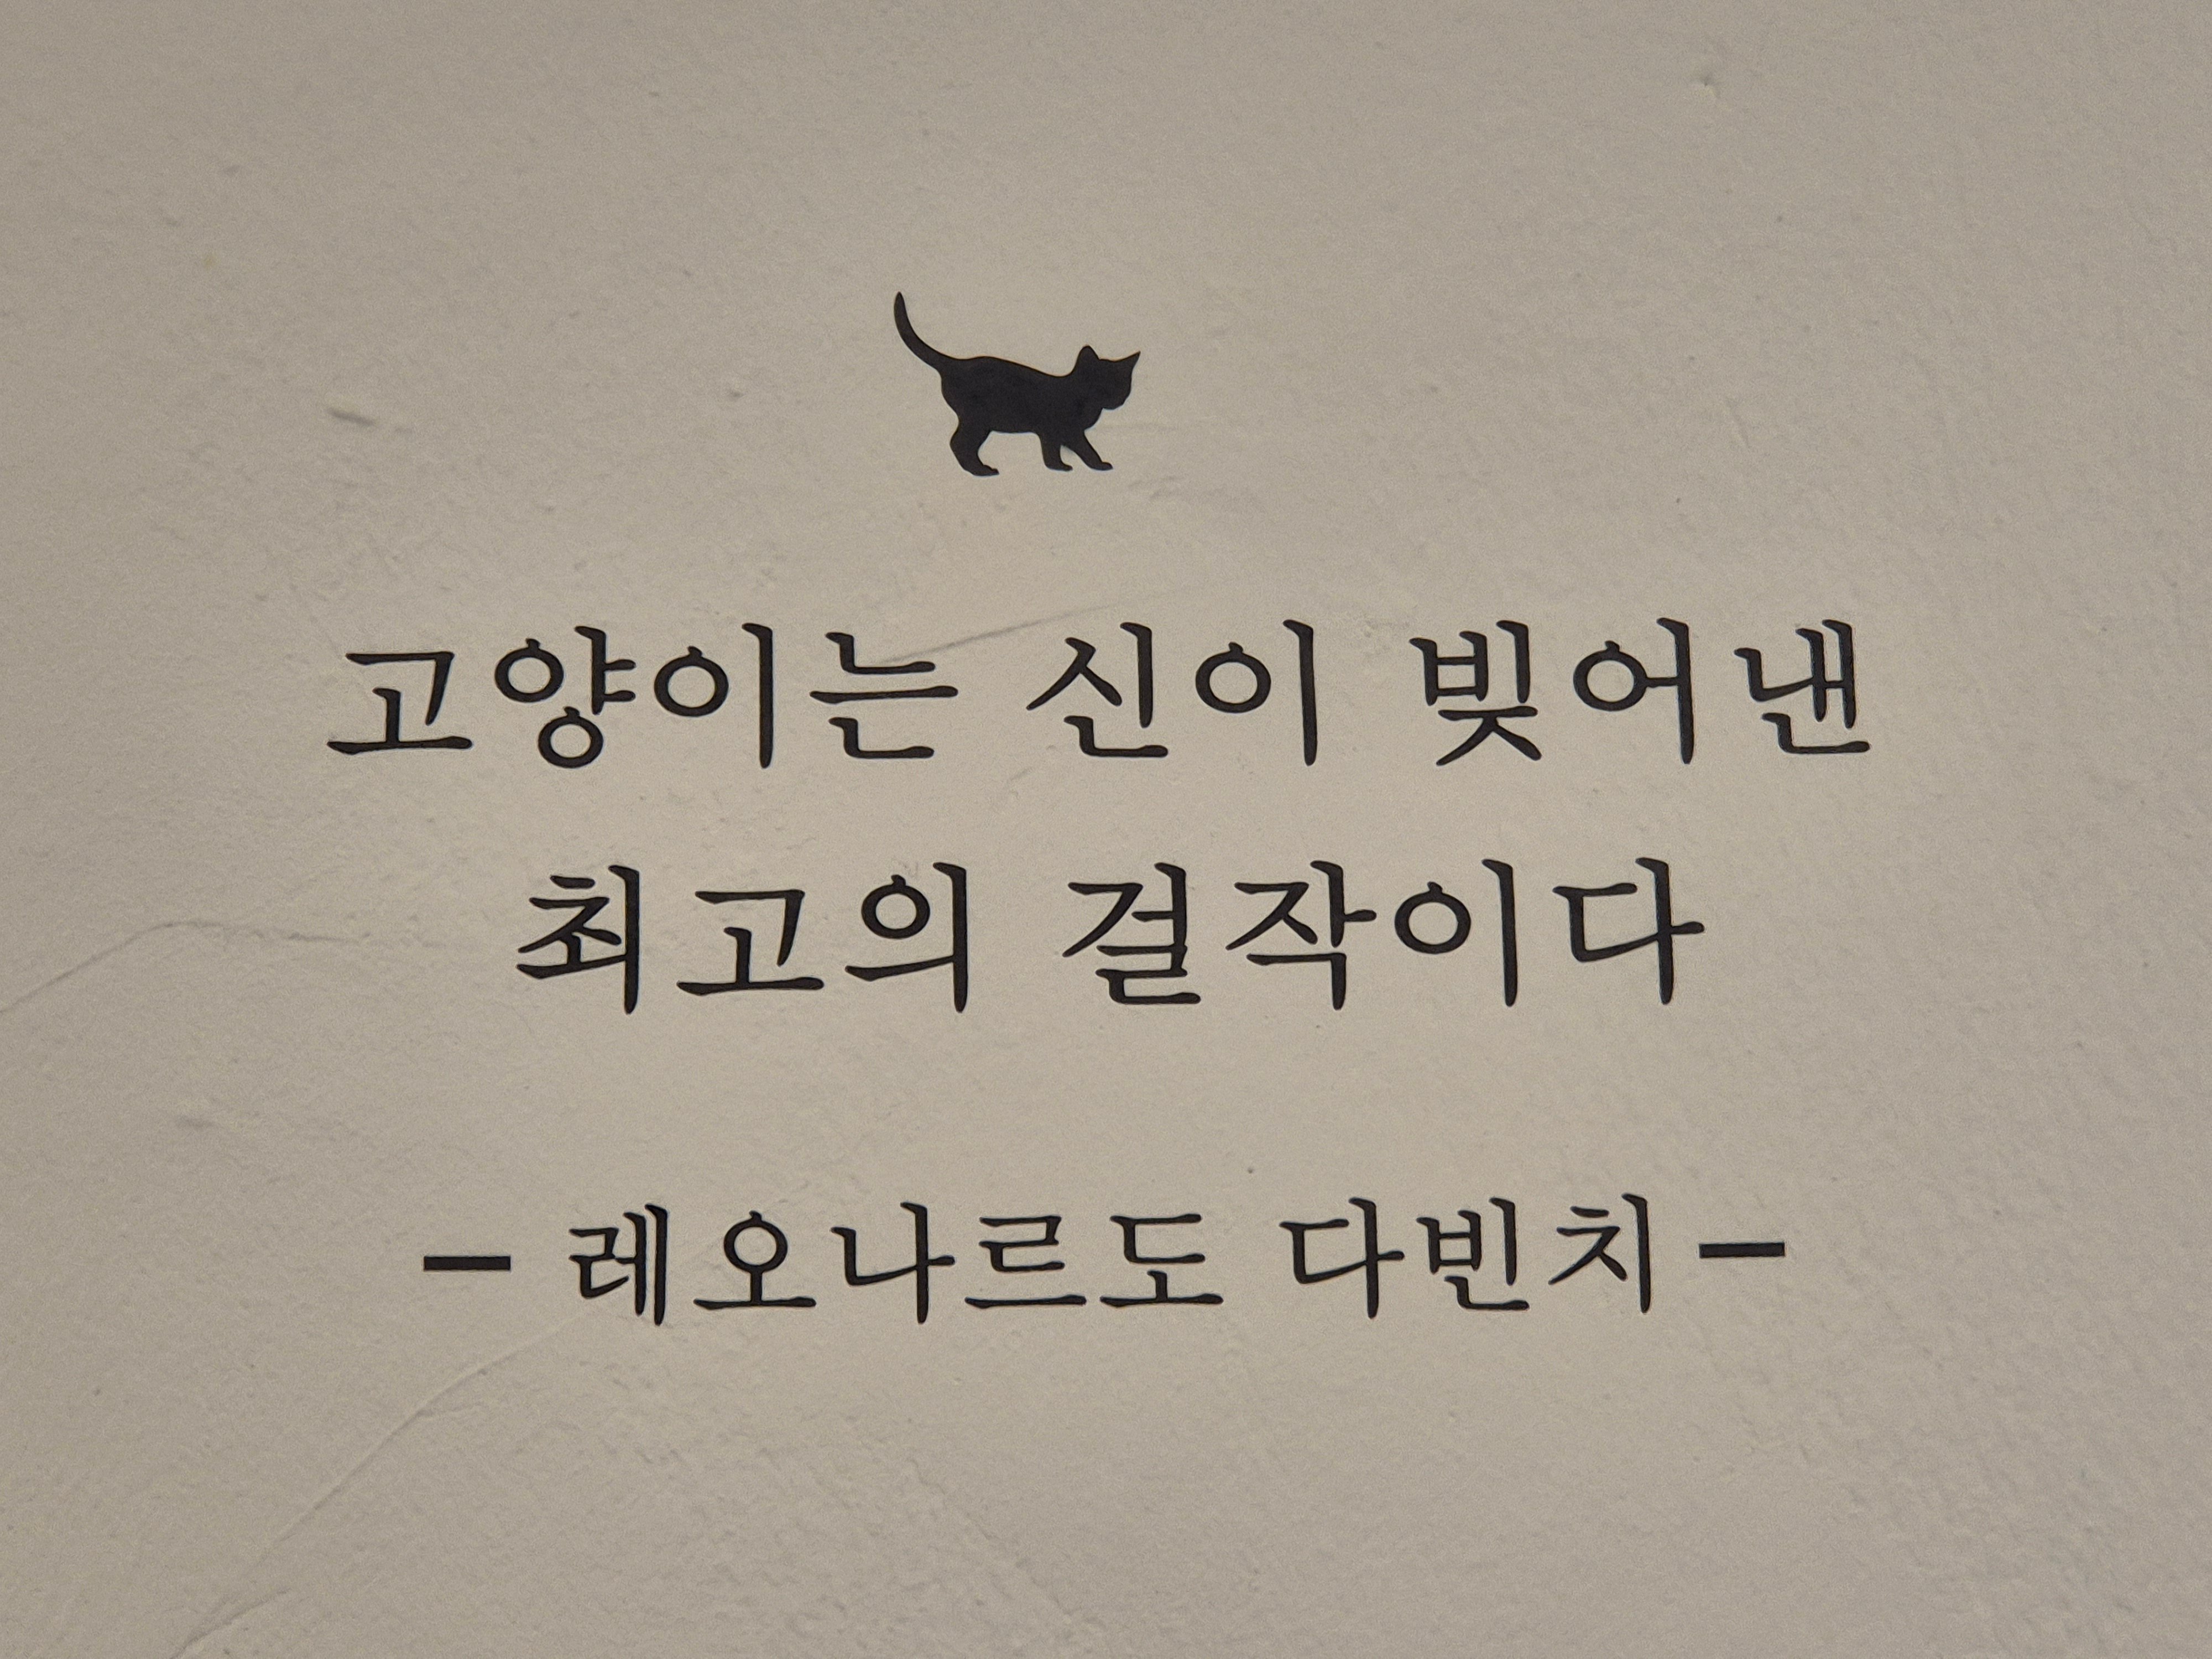 고양이는 신이 빚어낸
최고의 걸작이다
- 레오나르도 다빈치 -